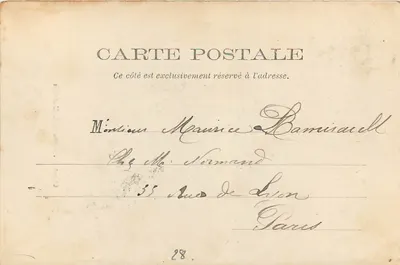 CARTE POSTALE
Ce côté est exclusivement réservé à l'adresse.
Monsieur Maurice
Chez Mr Normand
33 Rue de Lyon
Paris
28